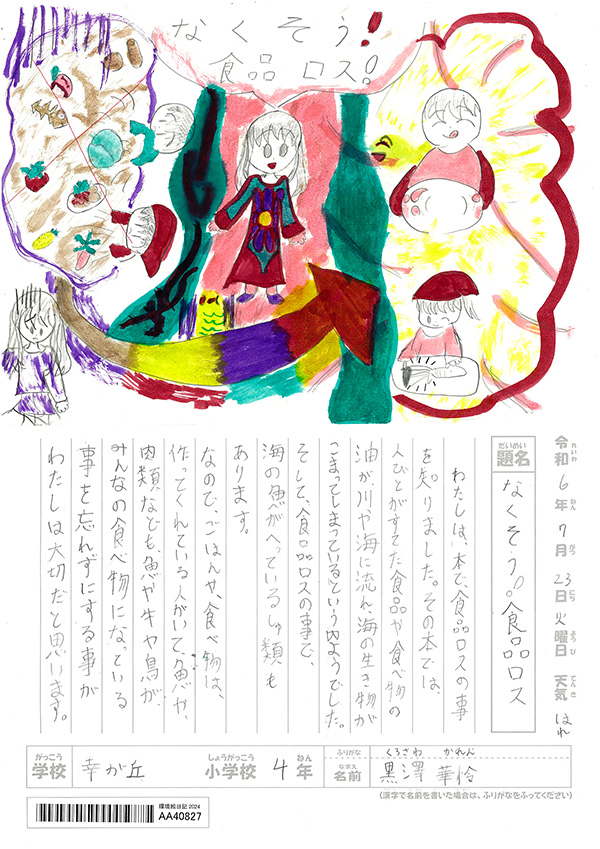 なくそう!
食品ロス!
令和6年7月23日火曜日 天気 はれ
れいわ ねん がつ にち ようび てんき
だいめい
題名
なくそう!!食品ロス
わたしは、本で、食品ロスの事
を知りました。その本では、
人びとがすてた食品や食べ物の
油が川や海に流れ、海の生き物が
こまってしまっているという内ようでした。
そして、食品ロスの事で、
海の魚がへっているしゅ類も
あります。
なので、ごはんや、食べ物は、
作ってくれている人がいて、魚や、
肉類なども、魚や牛や鳥が、
みんなの食べ物になっている
事を忘れずにする事が
わたしは大切だと思います。
がっこう しょうがっこう ねん ふりがな くろさわ かれん
学校 幸が丘 小学校 4年 なまえ 名前 黒澤 華怜
(漢字で名前を書いた場合は、ふりがなをふってください)
環境絵日記 2024
AA40827